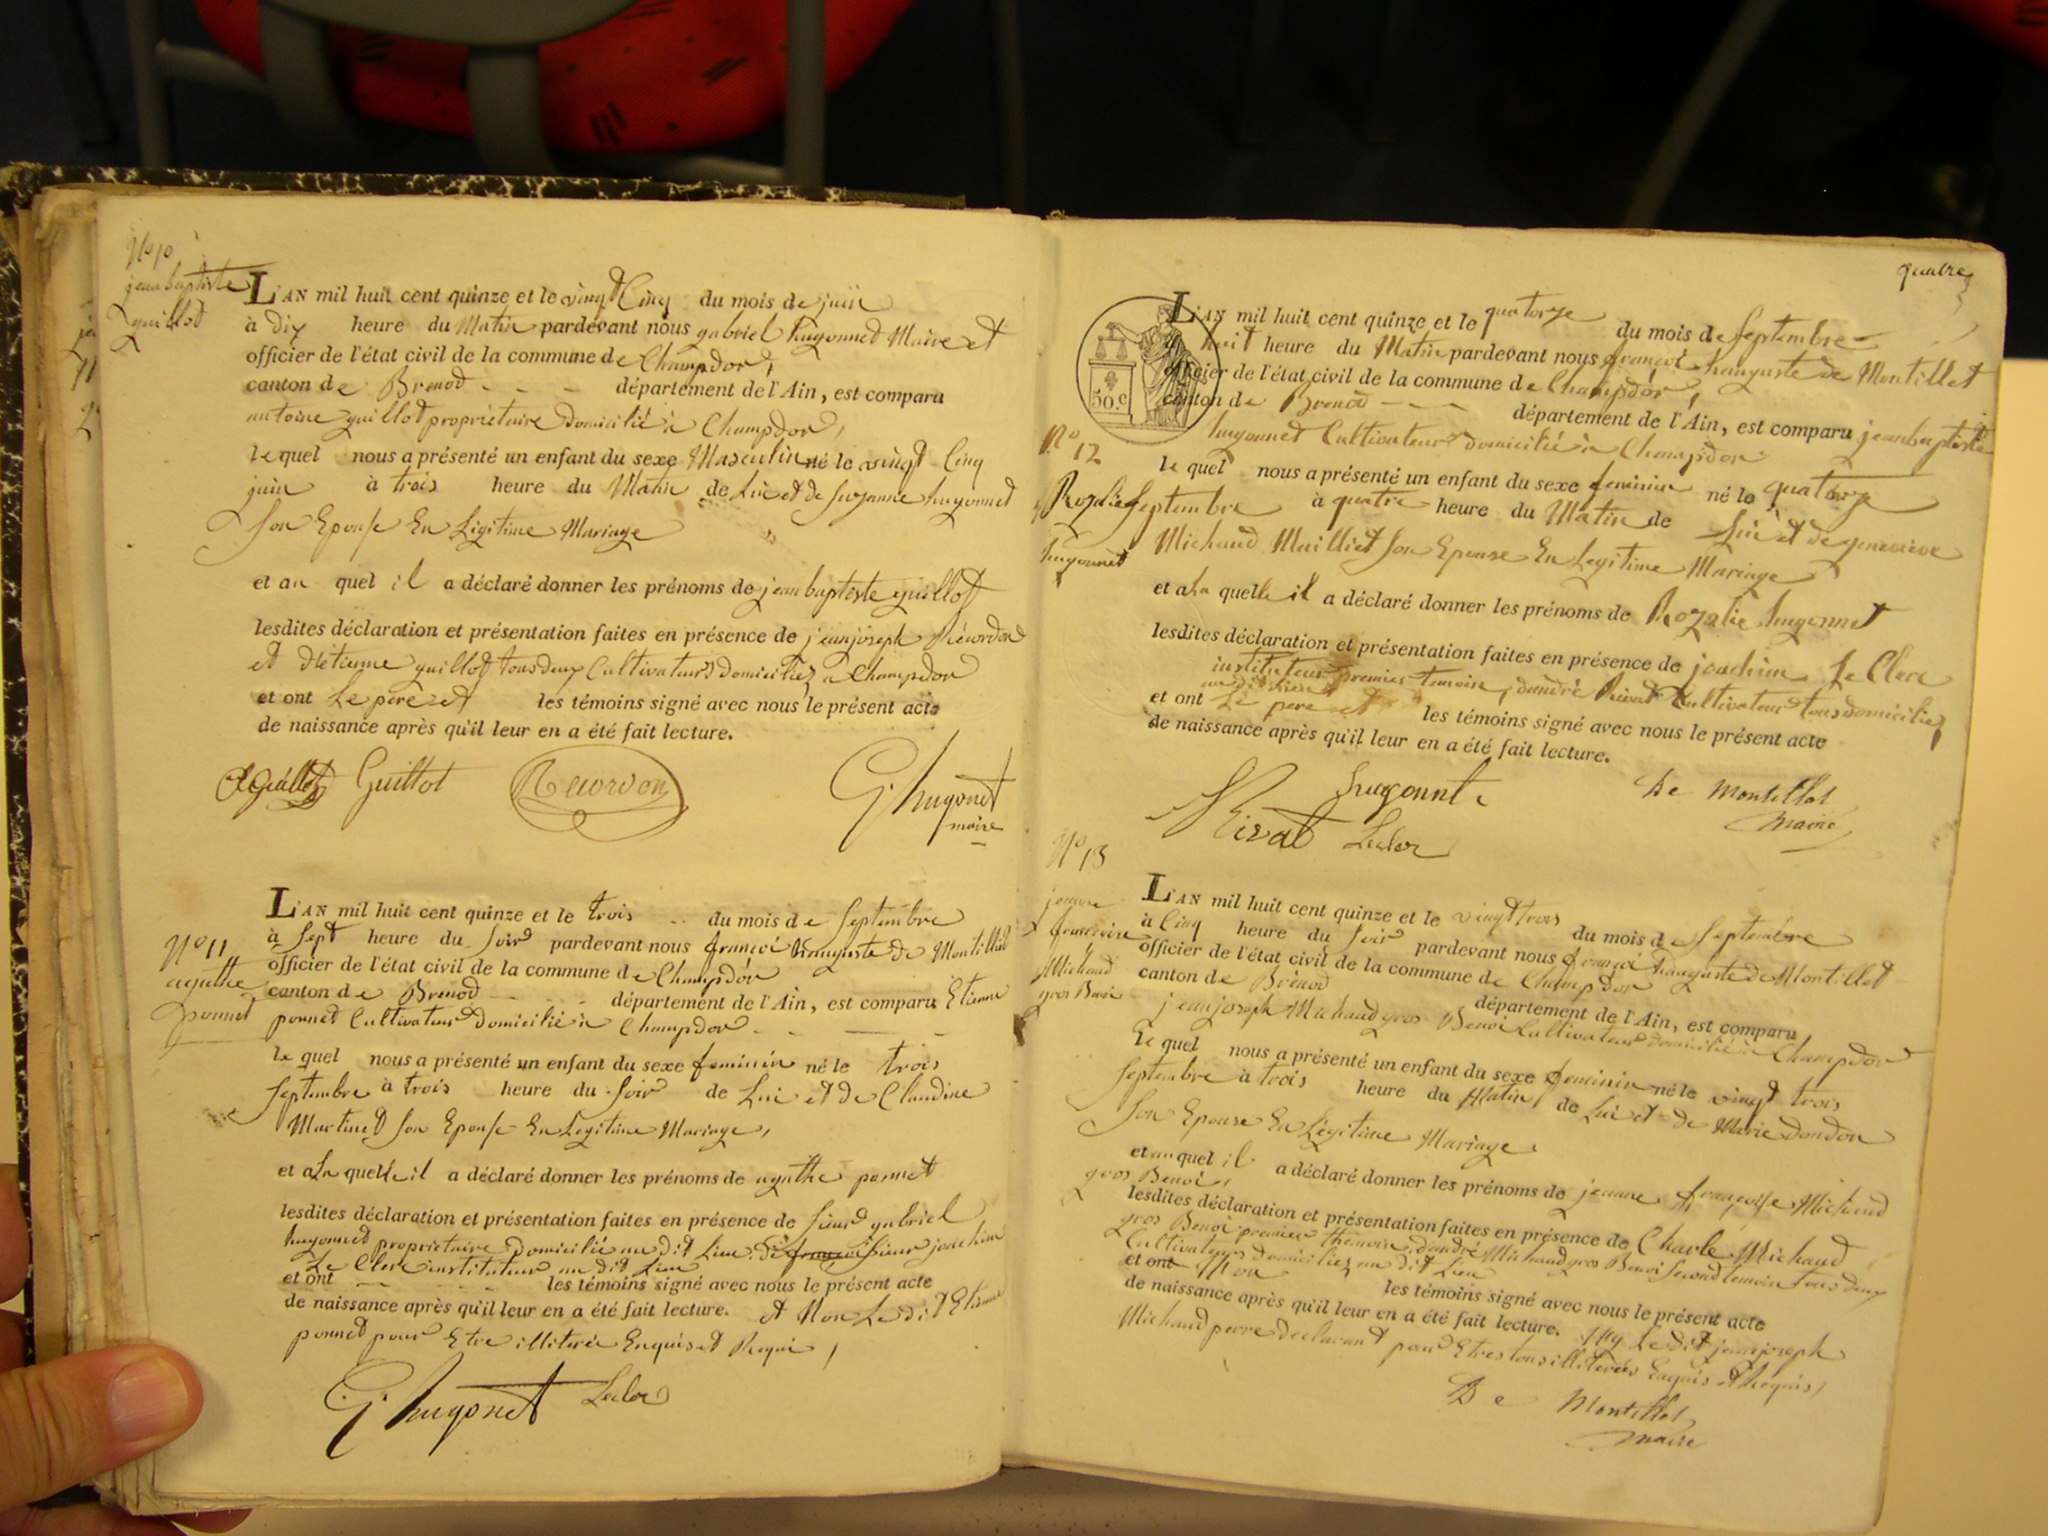 N° 10
jean baptiste
guillot
L'AN mil huit cent quinze et le vingt Cinq du mois de juin
à dix heure du Matin pardevant nous gabriel hugonnet Maire et
officier de l'état civil de la commune de Champdor,
canton de Brenod département de l'Ain, est comparu
antoine guillot propriétaire domicilié à Champdor,
le quel nous a présenté un enfant du sexe Masculin né le vingt Cinq
juin à trois heure du Matin de Lui et de Suzanne hugonnet
Son Epouse En Légitime Mariage
et au quel il a déclaré donner les prénoms de jean baptiste guillot
lesdites déclaration et présentation faites en présence de jean joseph Récordon
et d'Etienne guillot tous deux Cultivateurs domiciliez a Champdor
et ont Le père et les témoins signé avec nous le présent acte
de naissance après qu'il leur en a été fait lecture.
Guillot Recordon G. hugonet
maire
N° 11
agathe
ponnet
L'AN mil huit cent quinze et le trois du mois de Septembre
à Sept heure du Soir pardevant nous françoi hauguste de Montillet
officier de l'état civil de la commune de Champdor
canton de Brénod département de l'Ain, est comparu Etienne
ponnet Cultivateur domicilié à Champdor
le quel nous a présenté un enfant du sexe feminin né le trois
Septembre à trois heure du Soir de Lui et de Claudine
Martinet Son Epouse En Légitime Mariage,
et a La quelle il a déclaré donner les prénoms de agathe ponnet
lesdites déclaration et présentation faites en présence de Sieur gabriel
hugonnet propriétaire domicilié au dit Lieu Sieur joachim
Le Clerc instituteur au dit Lieu
et ont les témoins signé avec nous le présent acte
de naissance après qu'il leur en a été fait lecture. et Non Le dit Etienne
ponnet pour Etre illiteré Enquis et Requi,
G. hugonet Lecler
quatre
50.c
N° 12
Rozalie
hugonnet
L'AN mil huit cent quinze et le quatorze du mois de Septembre
à huit heure du Matin pardevant nous françoi hauguste de Montillet
officier de l'état civil de la commune de Champdor,
canton de Brenod département de l'Ain, est comparu jean baptiste
hugonnet Cultivateur domicilié à Champdor
le quel nous a présenté un enfant du sexe feminin né le quatorze
Septembre à quatre heure du Matin de Lui et de genevieve
Michaud Mailliet Son Epouse En Legitime Mariage
et a La quelle il a déclaré donner les prénoms de Rozalie hugonnet
lesdites déclaration et présentation faites en présence de joachim Le Clerc
instituteur premier temoin, d'andré Rivat Cultivateur tous domiciliez
au dit Lieu
et ont Le père et les témoins signé avec nous le présent acte
de naissance après qu'il leur en a été fait lecture.
hugonnt De Montillet
Rivat Lecler maire
N° 13
jeanne
francoise
Michaud
gros Benoi
L'AN mil huit cent quinze et le vingt trois du mois de Septembre
à Cinq heure du Soir pardevant nous françoi hauguste de Montillet
officier de l'état civil de la commune de Champdor
canton de Brénod département de l'Ain, est comparu
jean joseph Michaud gros Benoi Cultivateur domicilié à Champdor
le quel nous a présenté un enfant du sexe feminin né le vingt trois
Septembre à trois heure du Matin de Lui et de Marie dondon
Son Epouse En Légitime Mariage
et au quel il a déclaré donner les prénoms de jeanne françoise Michaud
gros Benoi,
lesdites déclaration et présentation faites en présence de Charle Michaud
gros Benoi premier themoin, d'andré Michaud gros Benoi Second temoin tous deux
Cultivateurs domiciliez au dit Lieu
et ont Non les témoins signé avec nous le présent acte
de naissance après qu'il leur en a été fait lecture. Ny Le dit jean joseph
Michaud perre declarant pour Etres tous illiterés Enquis et Requis,
De Montillet
maire